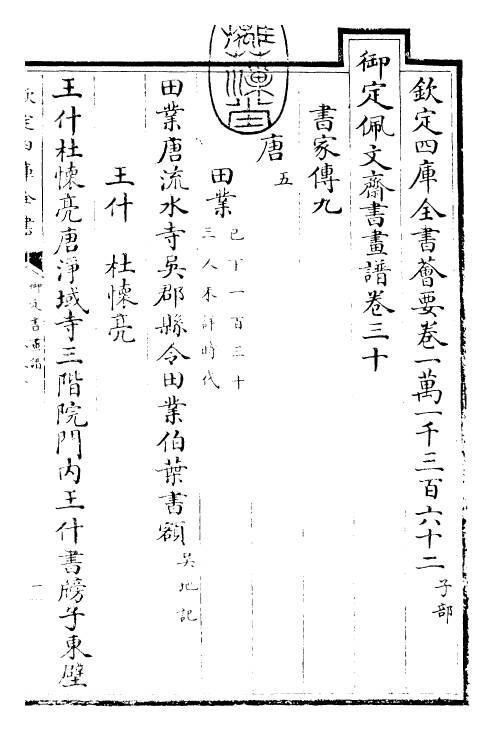 欽定四庫全書薈要卷一萬一千三百六十二 子部
御定佩文齋書畫譜卷三十
書家傳九
唐五
田業 已下一百三十
三人未詳時代
田業唐流水寺吳郡縣令田業伯葉書額 吳地記
王什 杜懐亮
王什杜懐亮唐淨域寺三階院門内王什書牓子東壁
欽定四庫全書
御定書畫譜